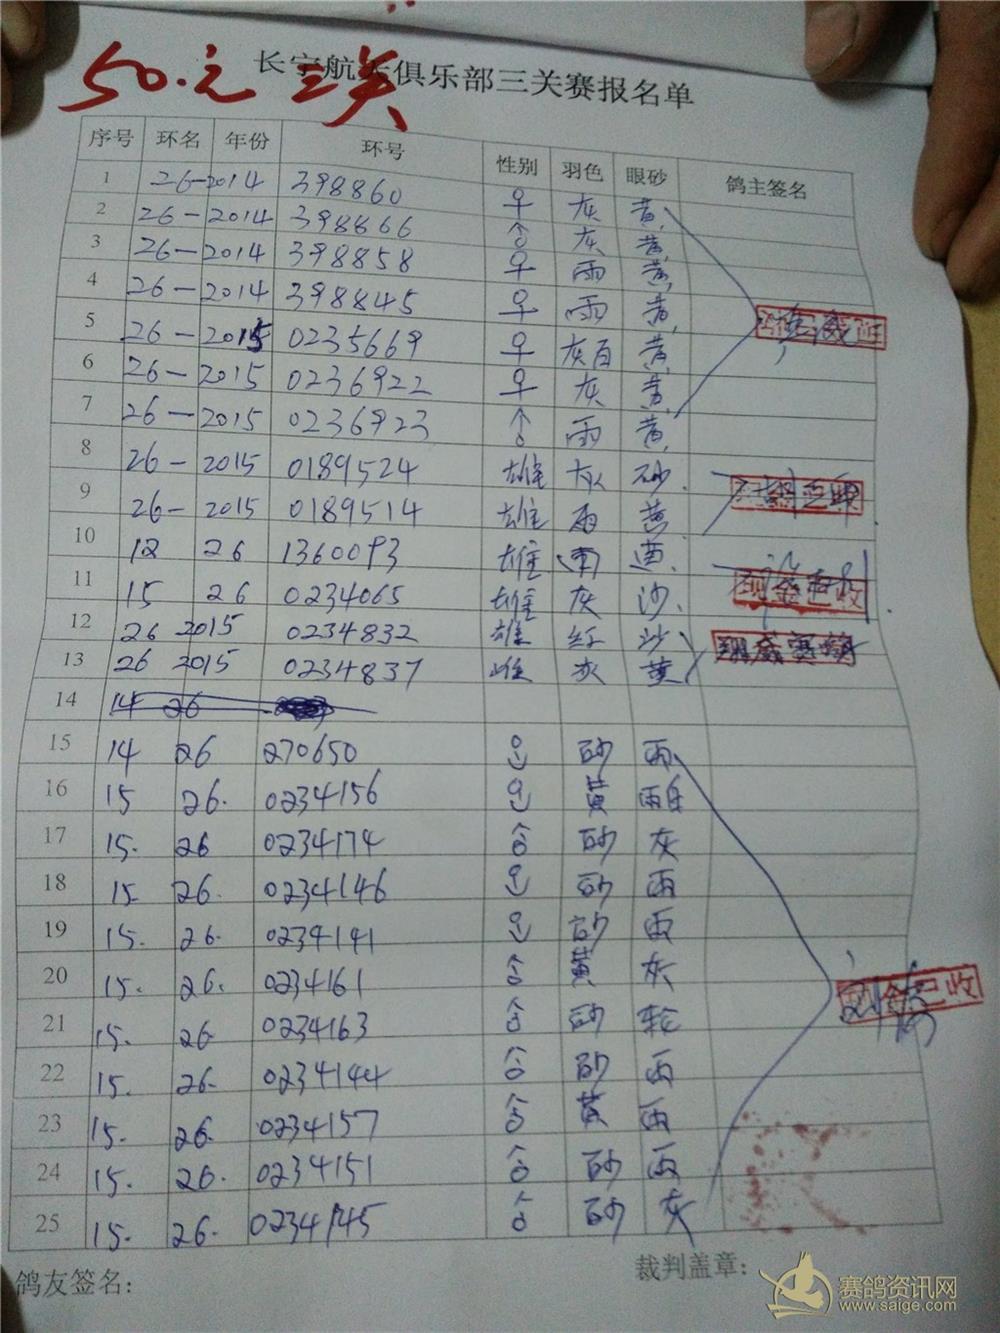 长宁航天俱乐部三关赛报名单
50.元 三关
序号 环名 年份 环号 性别 羽色 眼砂 鸽主签名
1 26-2014 398860 ♀ 灰 黄
2 26-2014 398866 ♂ 灰 黄
3 26-2014 398858 ♀ 雨 黄
4 26-2014 398845 ♀ 雨 黄
5 26-2015 0235669 ♀ 灰白 黄
6 26-2015 0236922 ♀ 灰 黄
7 26-2015 0236923 ♂ 雨 黄
8 26-2015 0189524 雄 灰 砂
9 26-2015 0189514 雄 雨 黄
10 12 26 1360093 雄 黄
11 15 26 0234065 雄 灰 沙 现金已收
12 26 2015 0234832 雄 红 沙 翔威赛鸽
13 26 2015 0234837 雌 灰 黄
14 14 26
15 14 26 270650 ♀ 砂 雨
16 15 26. 0234156 ♀ 黄
17 15. 26 0234174 ♂ 砂 灰
18 15 26. 0234146 ♀ 砂 雨
19 15. 26. 0234141 ♀ 砂 雨
20 15. 26. 0234161 ♂ 黄 灰 现金已收
21 15. 26. 0234163 ♂ 砂 轮
22 15. 26. 0234144 ♂ 砂 雨
23 15. 26. 0234157 ♂ 黄 雨
24 15. 26. 0234151 ♂ 砂 雨
25 15. 26. 0234145 ♂ 砂 灰
鸽友签名: 裁判盖章:
赛鸽资讯网
www.saige.com